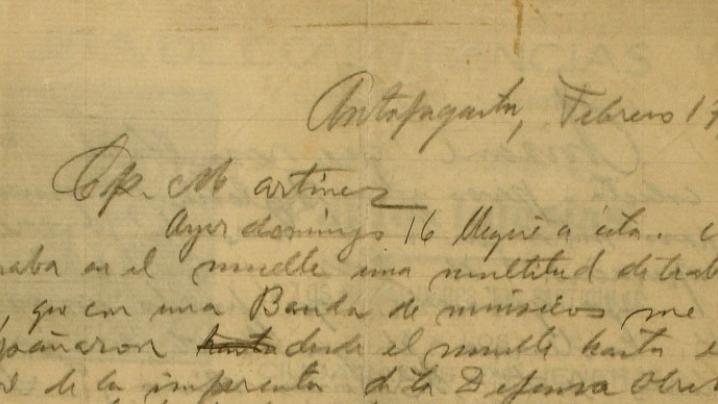 Antofagasta, Febrero 17
Cp. Martinez
Ayer domingo 16 llegué a ésta.
raba en el muelle una multitud de trab
, que con una Banda de músicos me
pañaron hasta desde el muelle hasta
de la imprenta de la Defensa Obre